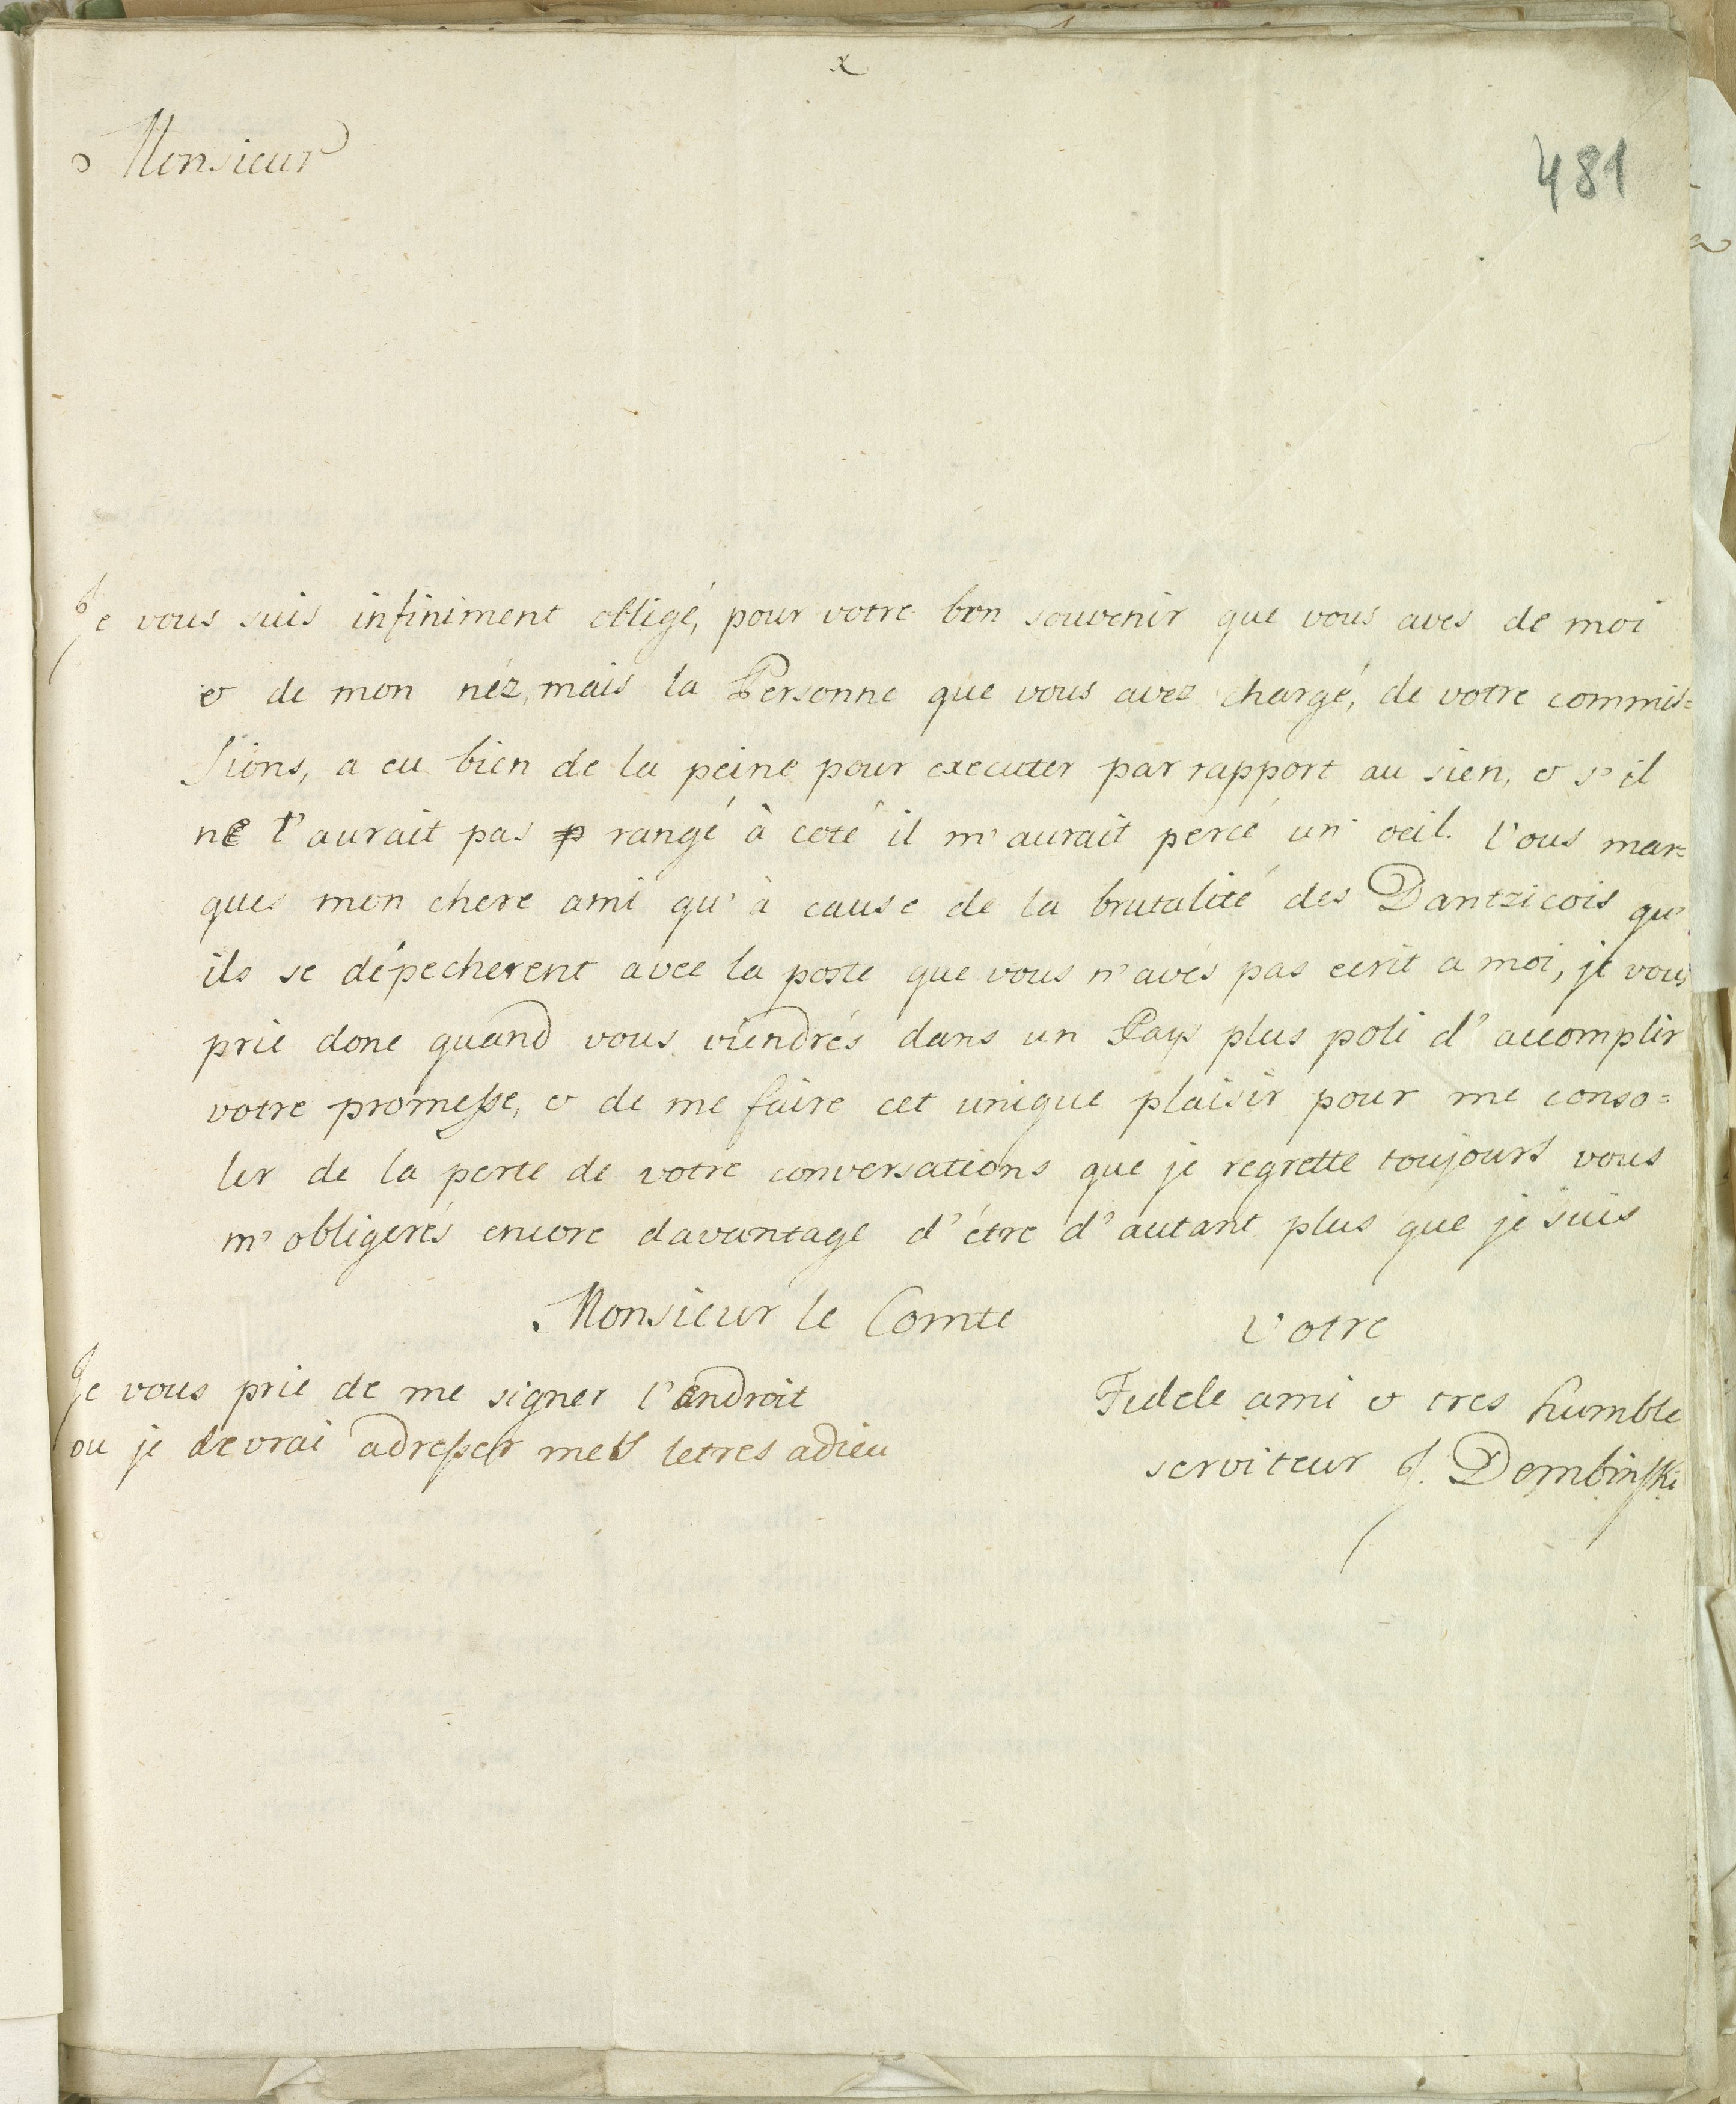 x
Monsieur
481
Je vous suis infiniment obligé, pour votre bon souvenir que vous aves de moi
& de mon néz, mais la Personne que vous avez chargé, de votre commis=
sions, a eu bien de la peine pour executer par rapport au sien, & s'il
ne l'aurait pas rangé à coté il m'aurait percé un oeil. Vous mar=
ques mon chere ami qu'à cause de la brutalité des Dantzicois qu'
ils se dépecherent avec la poste que vous n'avés pas ecrit a moi, je vous
prie donc quand vous viendrés dans un Pays plus poli d'accomplir
votre promesse, & de me faire cet unique plaisir pour me conso=
ler de la perte de votre conversations que je regrette toujours vous
m'obligerés encore davantage d'étre d'autant plus que je suis
Monsieur le Comte Votre
Fidele ami & tres humble
serviteur J. Dembinski
Je vous prie de me signer l'endroit
ou je devrai adresser mes letres adieu